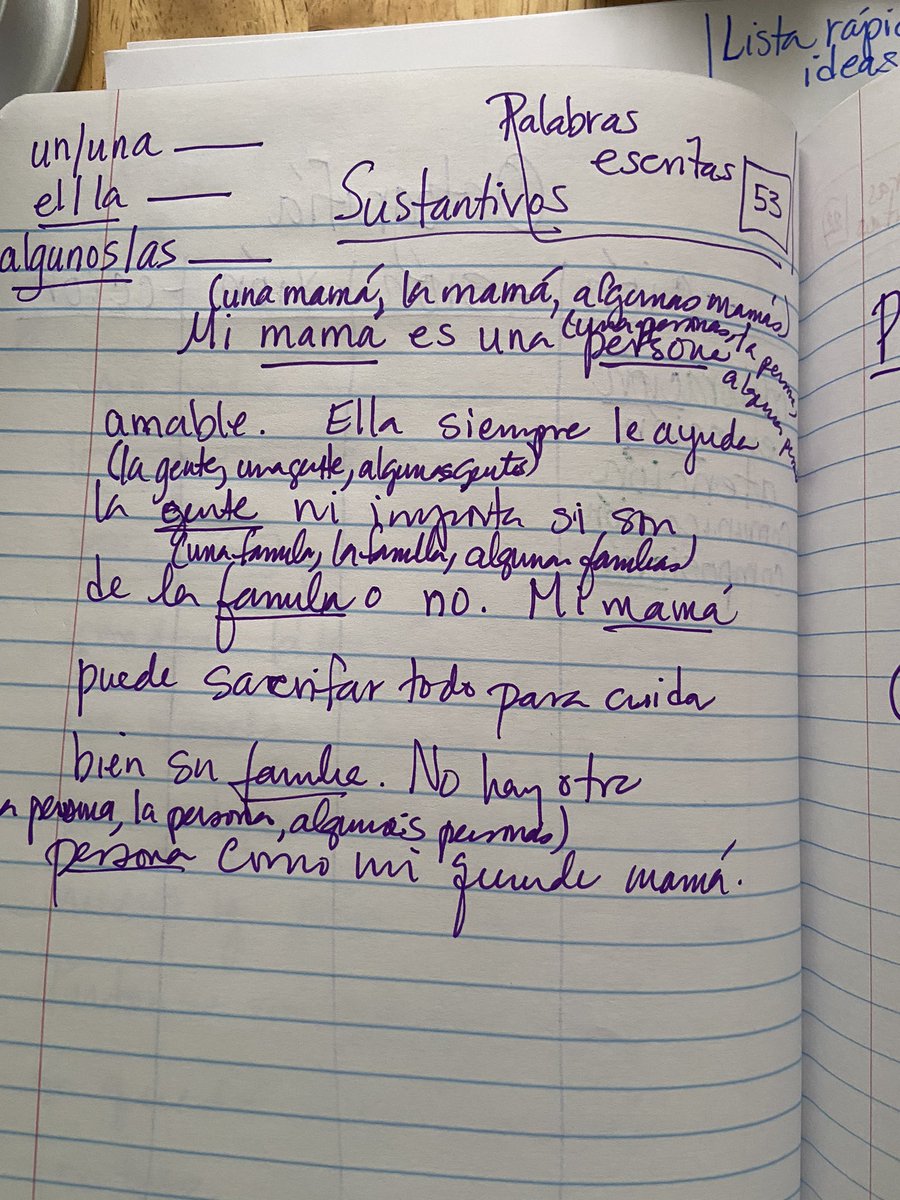 Lista rápi
ideas
Palabras
escritas
53
un/una ___
el/la ___
algunos/as ___
Sustantivos
(una mamá, la mamá, algunas mamás)
Mi mamá es una persona
amable. Ella siempre le ayuda
(la gente, una gente, algunas gentes)
la gente ni importa si son
(una familia, la familia, algunas familias)
de la familia o no. Mi mamá
puede sacrifar todo para cuida
bien su familia. No hay otra
persona, la persona, algunais personas)
persona como mi querida mamá.